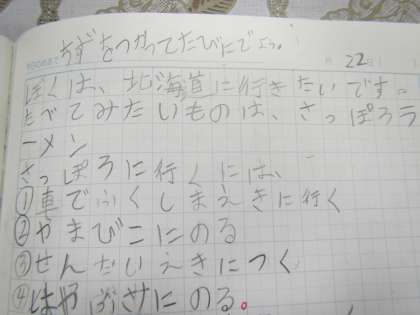 ちずをつかってたびにでよう。
22
ぼくは、北海道に行きたいです。
たべてみたいものは、さっぽろラ
ーメン
さっぽろに行くには、
①直でふくしまえきに行く
②やまびこにのる
③せんだいえきにつく
④はやぶさにのる。